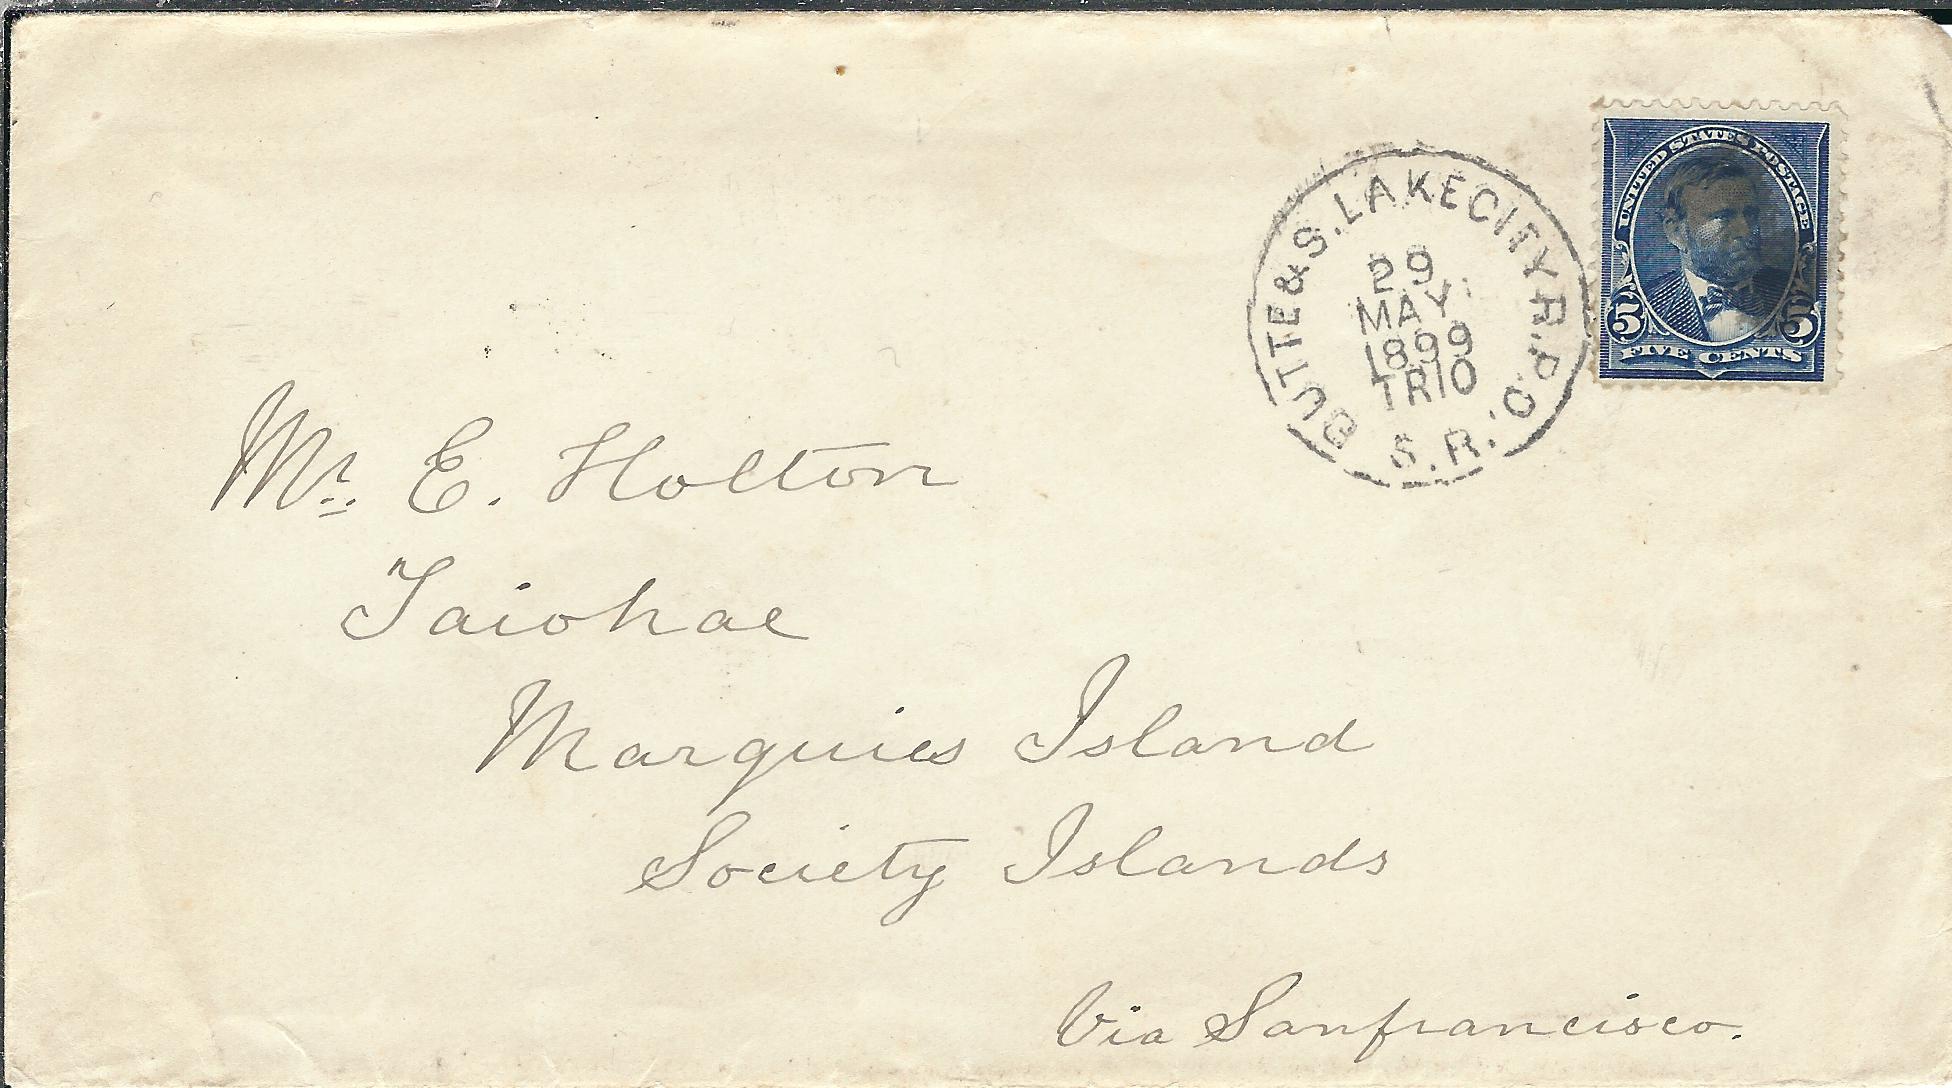 UNITED STATES POSTAGE
5 5
FIVE CENTS
BUTTE & S. LAKE CITY R.P.O.
29
MAY
1899
TR10
S.R.
Mr. E. Holton
Taiohae
Marquies Island
Society Islands
Via Sanfrancisco.